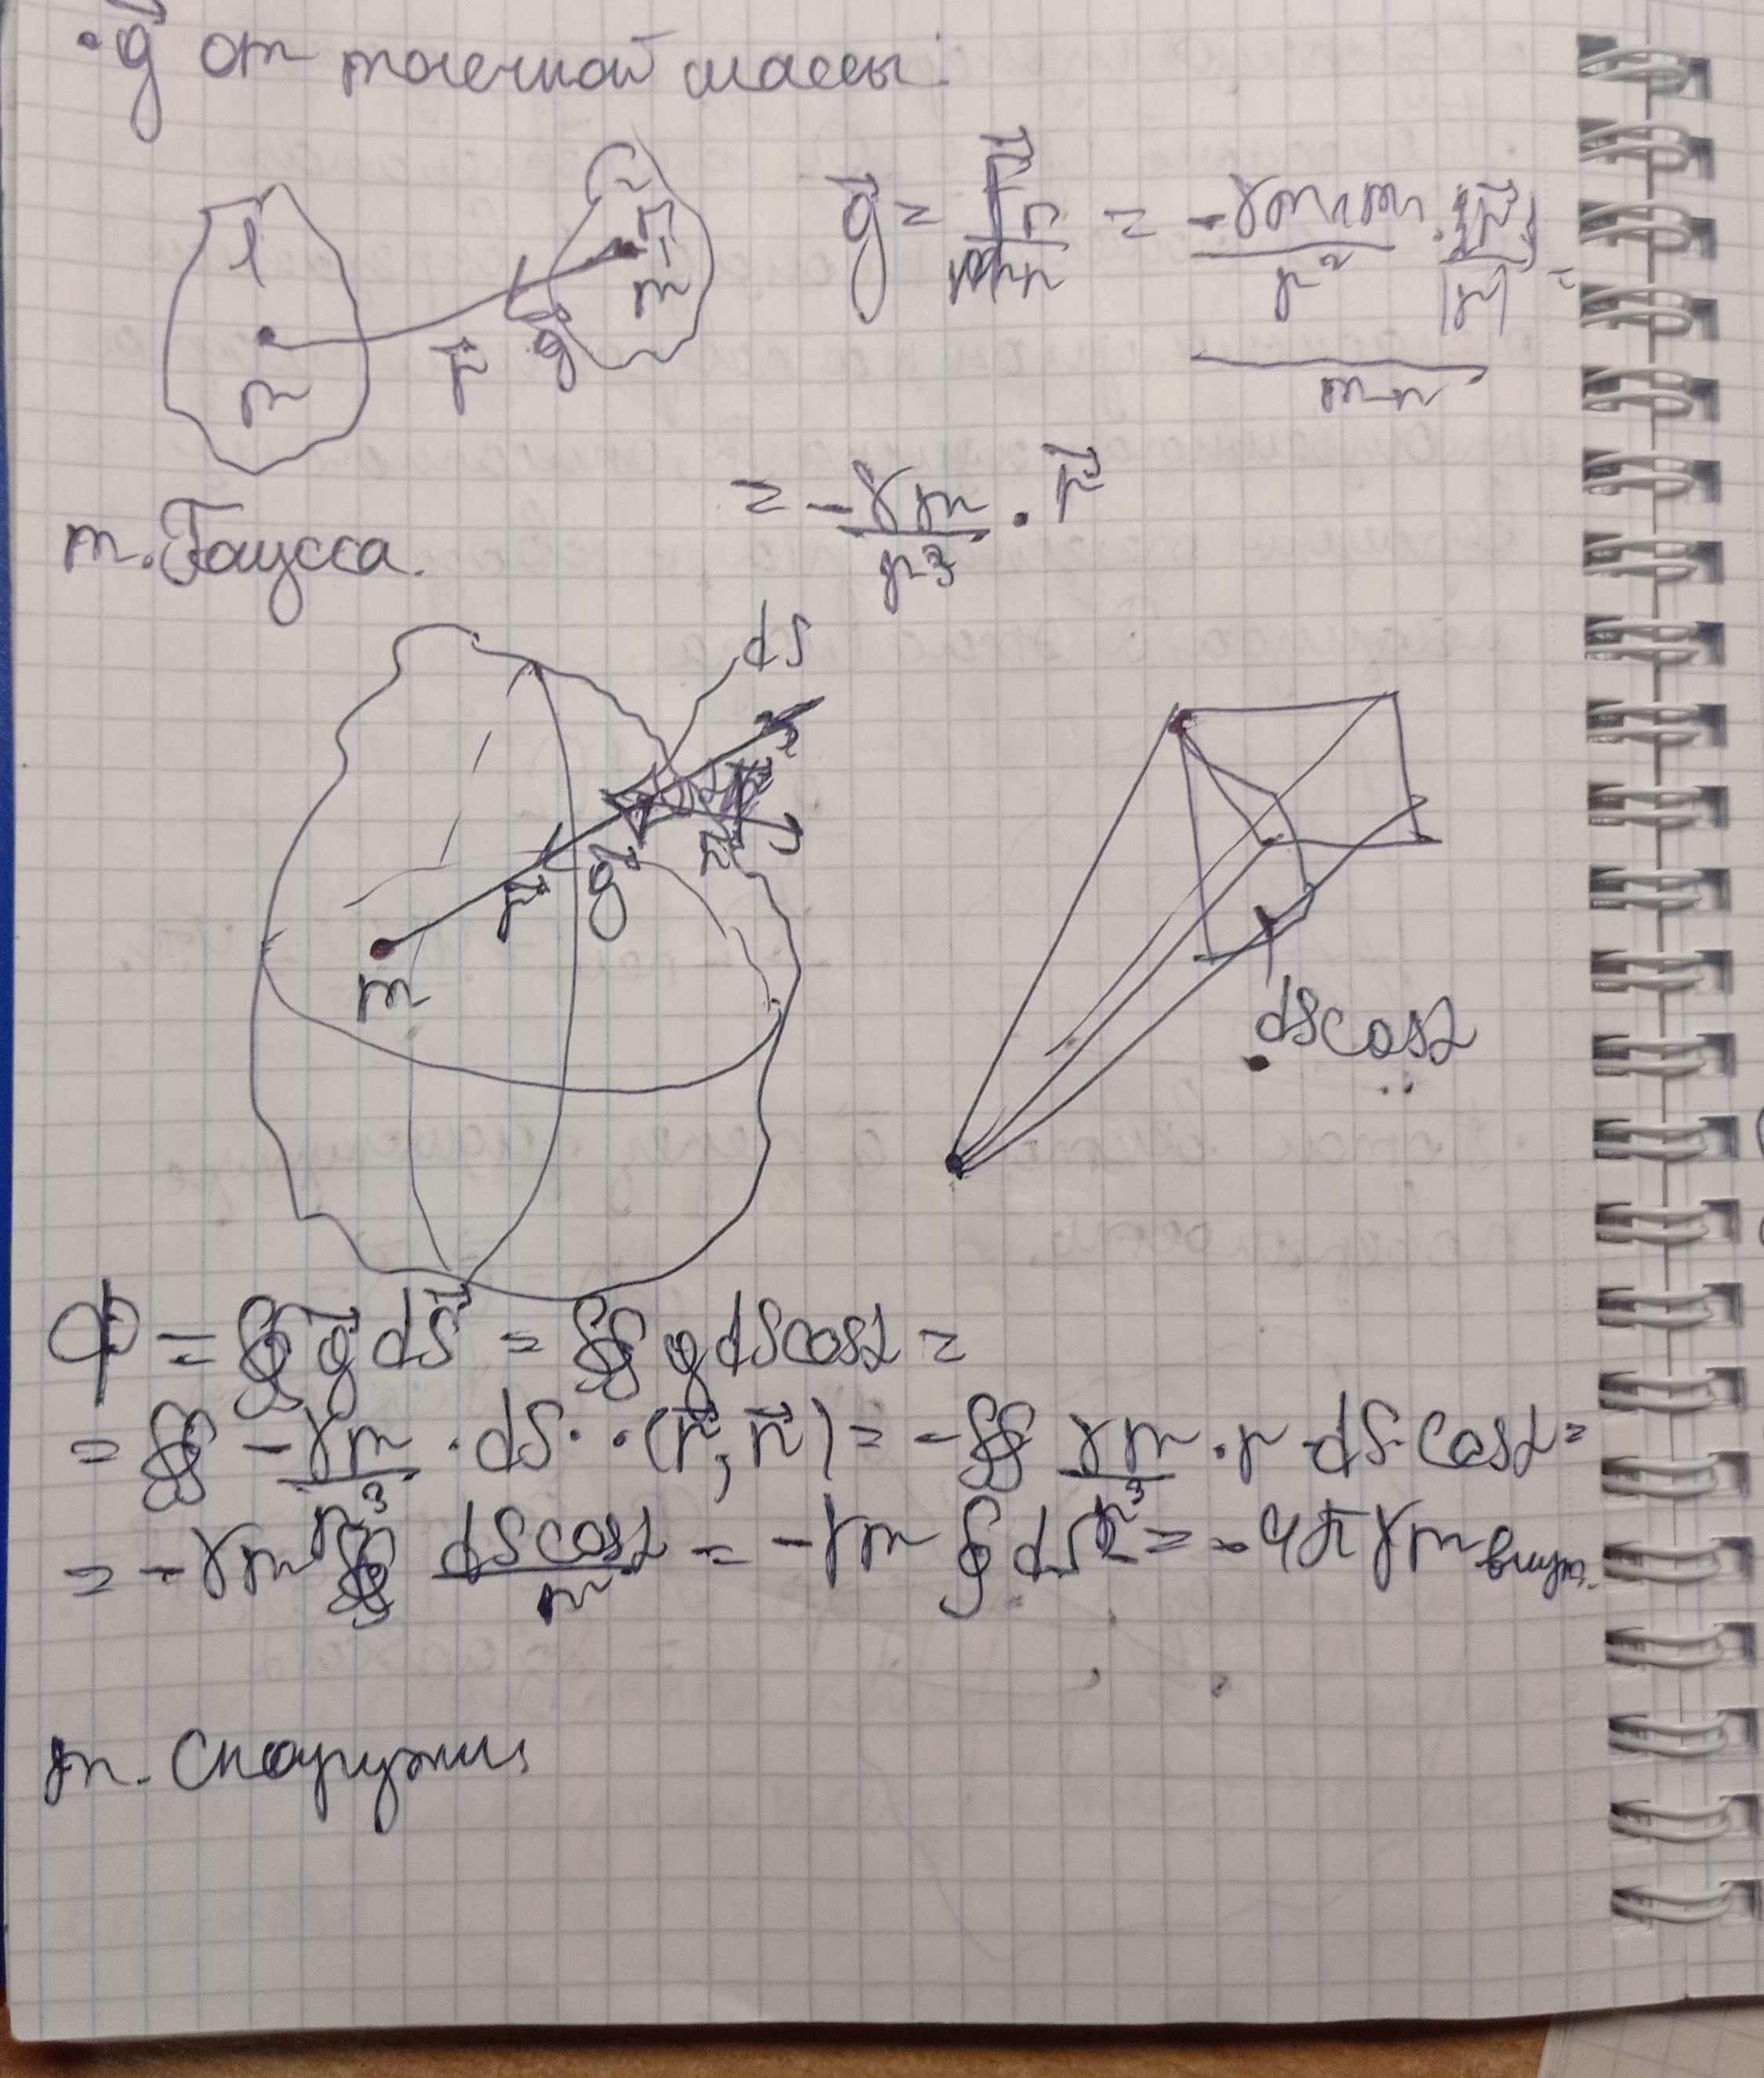 • g⃗ от точечной массы:
1 m r⃗ g⃗ 2 m
g⃗ = F⃗п / mп = (-γm mп / r² · r⃗ / |r|) / mп =
= -γm / r³ · r⃗
т. Гаусса.
dS
m r⃗ g⃗ n⃗
dScosα
Ф = ∯ g⃗ dS⃗ = ∯ g dScosα =
= ∯ -γm / r³ · dS · · (r⃗, n⃗) = -∯ γm / r³ · r · dS · cosα =
= -γm ∯ dScosα / r² = -γm ∮ dΩ = -4πγm внут.
m. снаружи